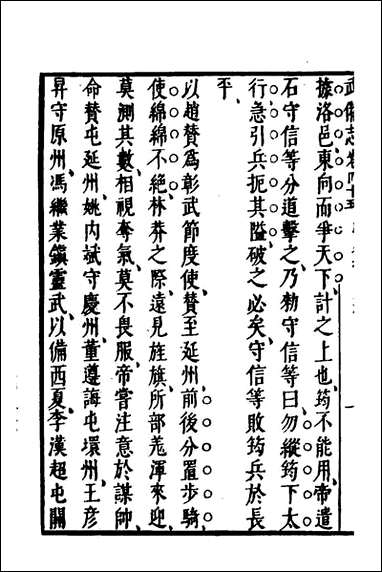 武備志卷四十五
據洛邑東向而爭天下計之上也筠不能用帝遣
石守信等分道擊之乃勅守信等曰勿縱筠下太
行急引兵扼其隘破之必矣守信等敗筠兵於長
平
以趙贊爲彰武節度使贊至延州前後分置步騎
使綿綿不絶林莽之際遠見旌旗所部羗渾來迎
莫測其數相視奪氣莫不畏服帝嘗注意於謀帥
命贊屯延州姚内斌守慶州董遵誨屯環州王彦
昇守原州馮繼業鎮靈武以備西夏李漢超屯關